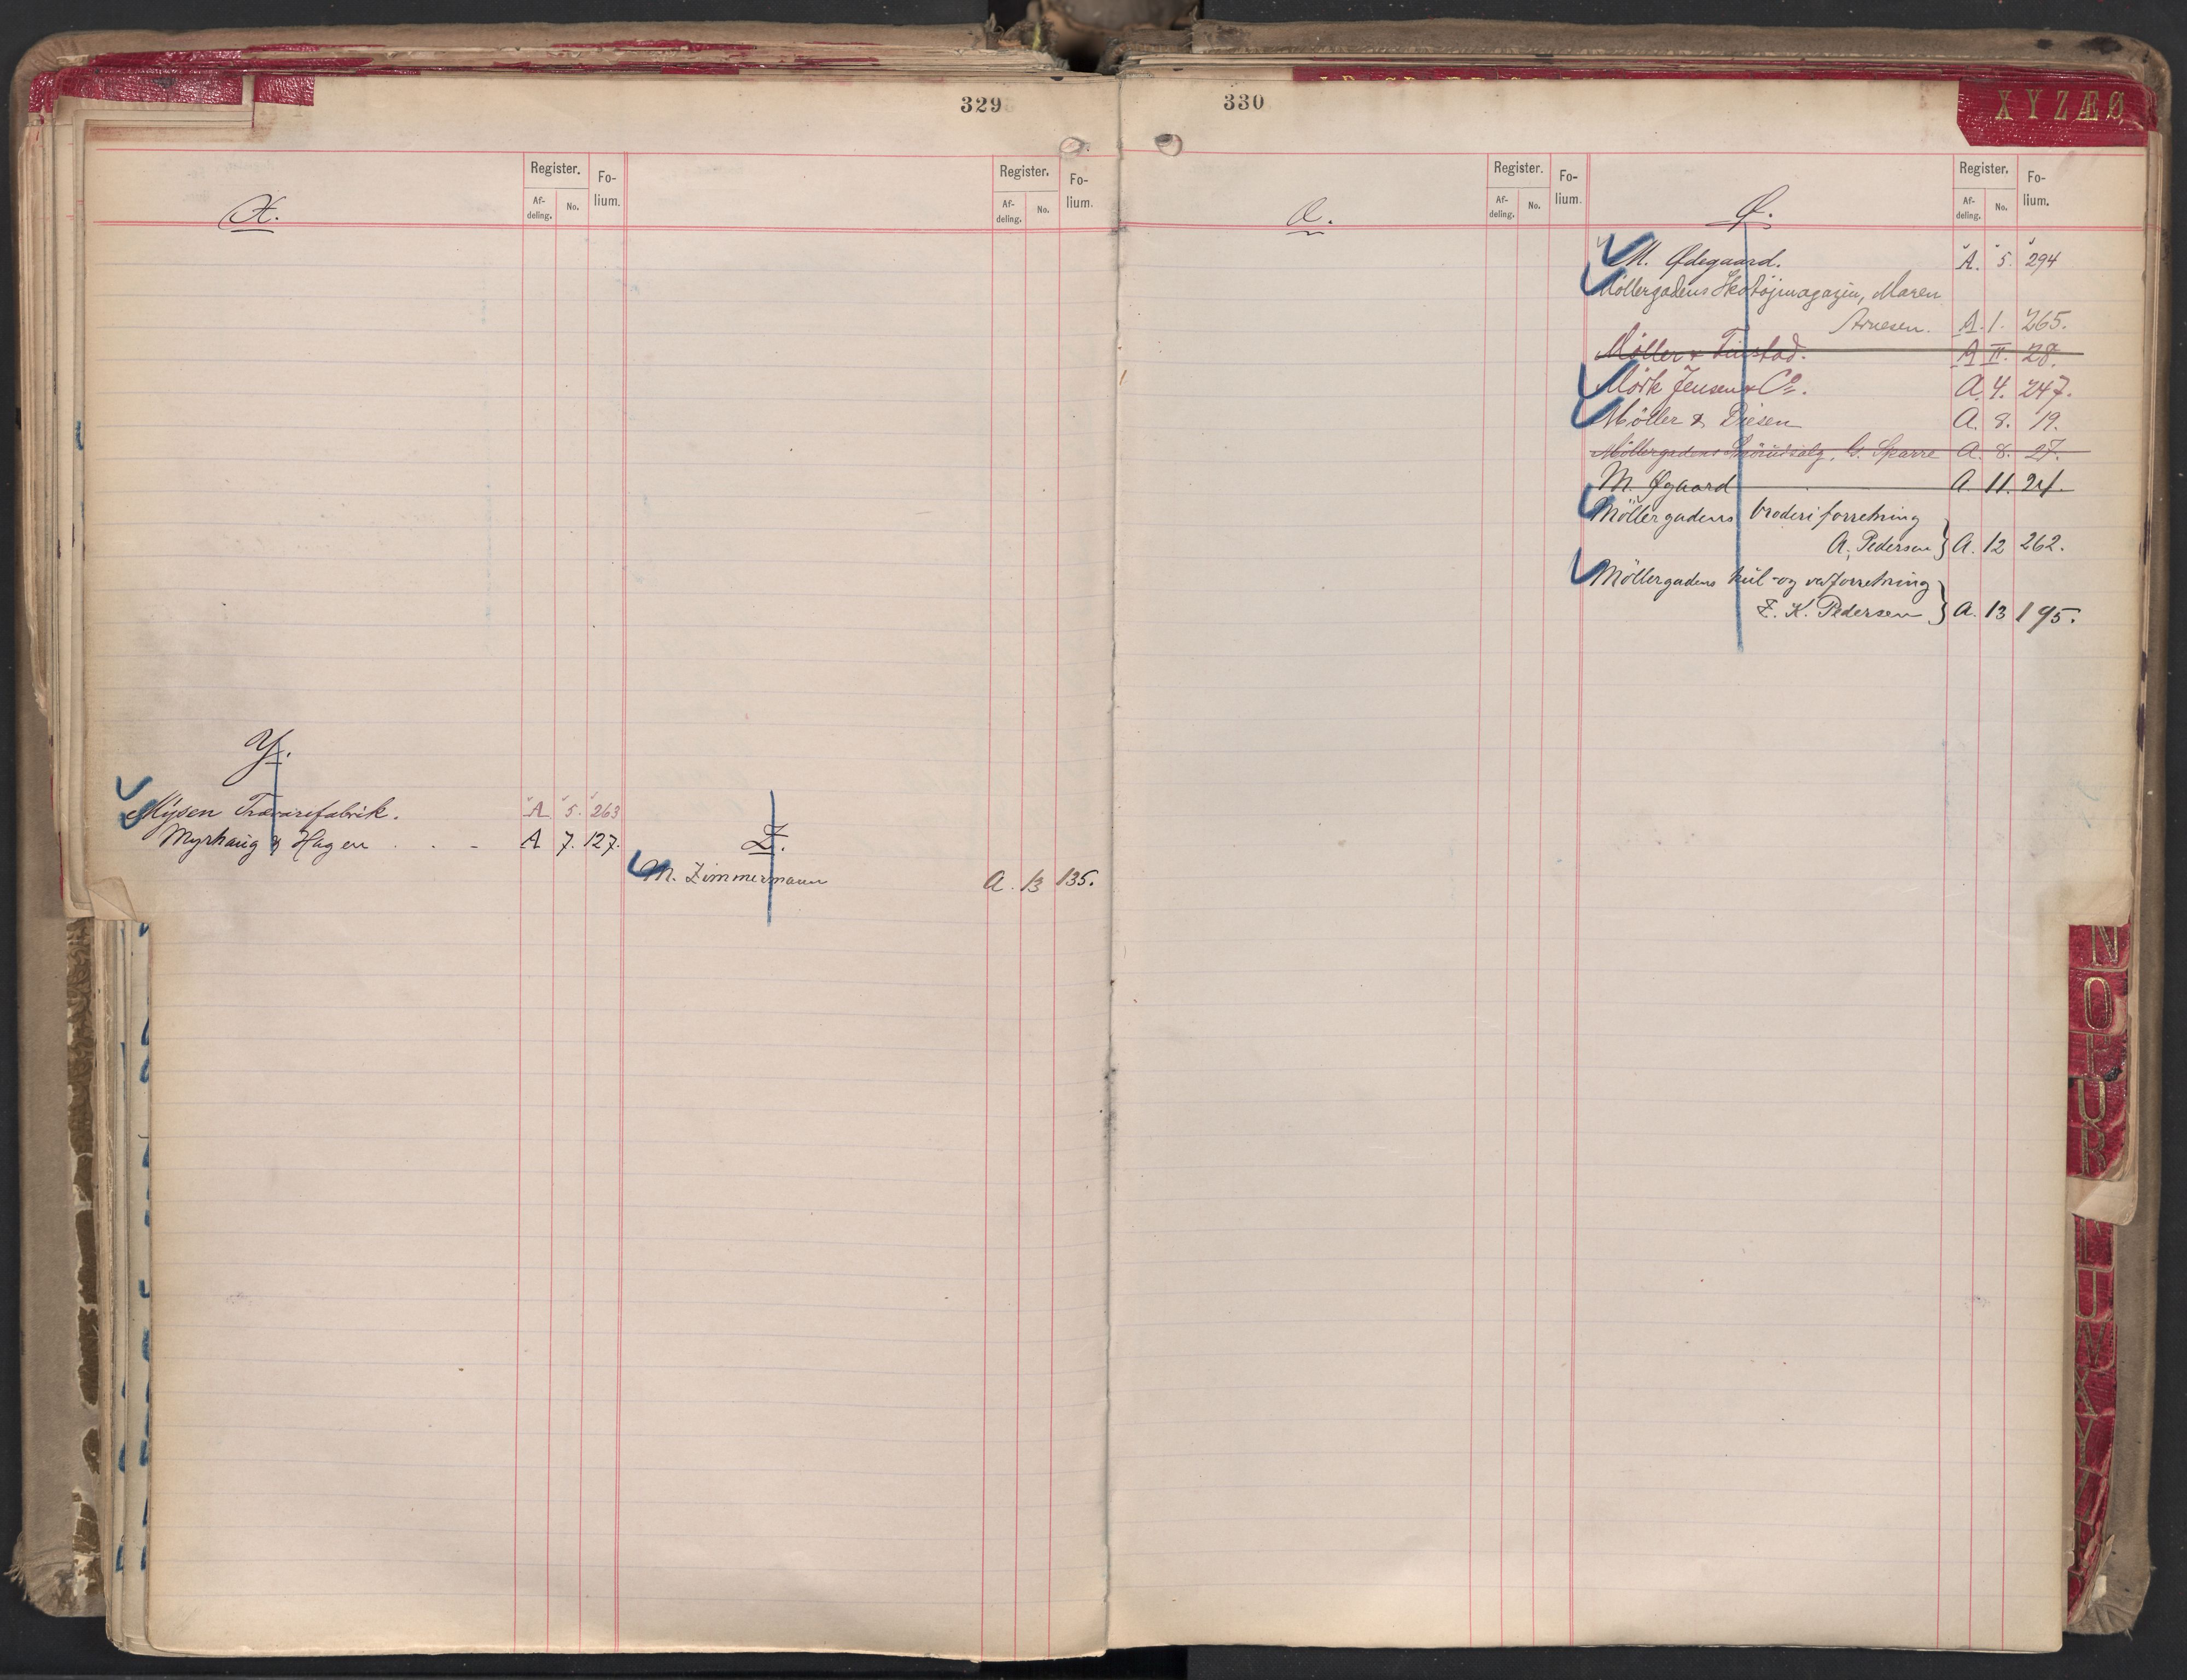 329
Register.
Fo-
lium.
Af-
deling.
No.
Register.
Fo-
lium.
Af-
deling.
No.
X.
Y.
Mysen Trævarefabrik. A 5. 263
Myrhaug & Hagen . . - A 7. 127.
Z.
M. Zimmermann A. 13 135.
330
X Y Z Æ Ø
Register.
Fo-
lium.
Af-
deling.
No.
Register.
Fo-
lium.
Af-
deling.
No.
Æ.
Ø.
M. Ødegaard. A. 5. 294
Möllergadens Skotöjmagazin, Maren
Arnesen. A. 1. 265.
Möller & A II. 28.
Mörk Jensen & Co. A. 4. 247.
Möller & Diesen A. 8. 19.
Möllergadens Smörudsalg, G. Sparre A. 8. 27.
M. Øgaard A. 11. 21.
Möllergadens broderiforretning
A. Pedersen } A. 12 262.
Möllergadens kul- og vedforretning
Z. K. Pedersen } A. 13 195.
N
O
P
U
R
T
U
V
X
Y